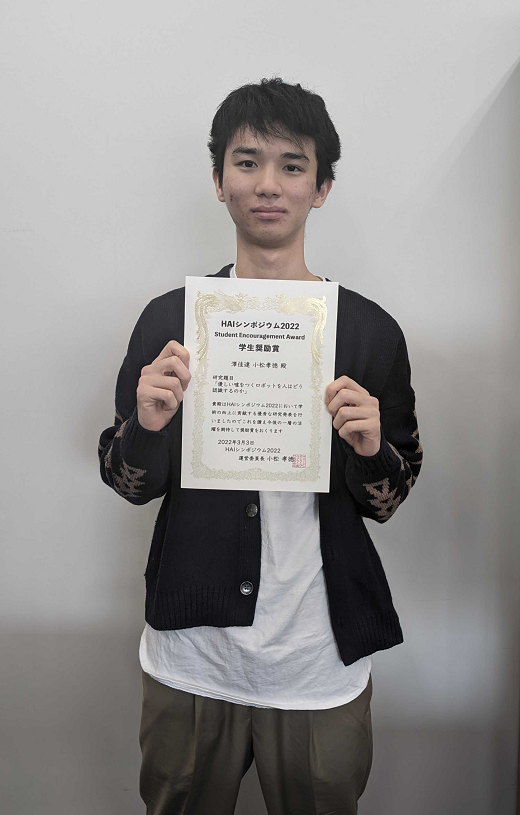 HAIシンポジウム2022
Student Encouragement Award
学生奨励賞
澤佳達 小松孝徳 殿
研究題目
「優しい嘘をつくロボットを人はどう
認識するのか」
貴殿はHAIシンポジウム2022において学
術の向上に貢献する優秀な研究発表を行
いましたのでこれを讃え今後の一層の活
躍を期待して奨励賞をおくります
2022年3月3日
HAIシンポジウム2022
運営委員長 小松 孝徳